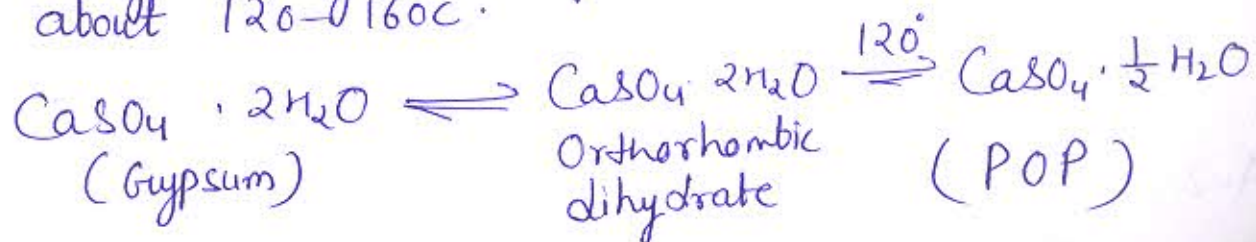 about 120-160c.
CaSO4 . 2H2O ⇌ CaSO4 2H2O ⇌ 120° CaSO4 . 1/2 H2O
(Gypsum) Orthorhombic dihydrate (POP)